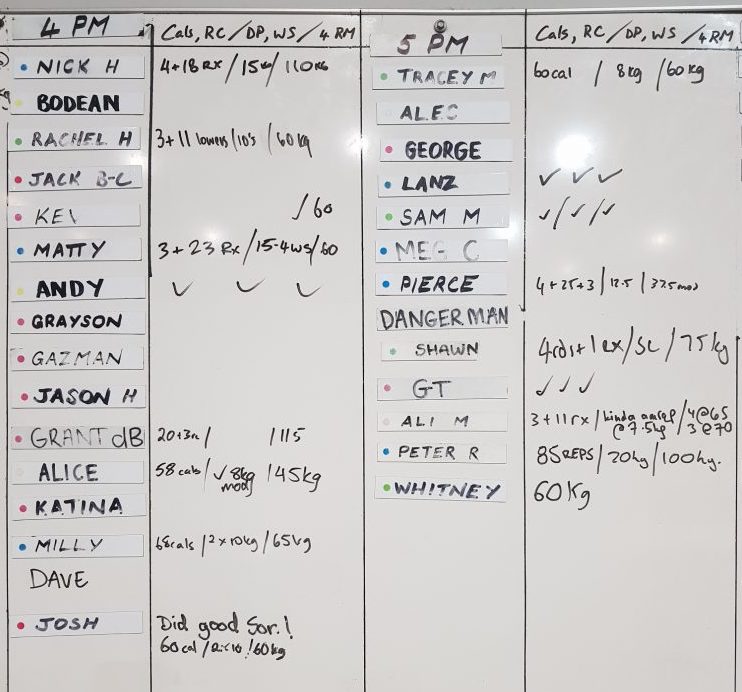 4 PM
Cals, RC/DP, WS/4 RM
NICK H 4+18 RX/15kg/110KG
BODEAN
RACHEL H 3+11 lowers/10's/60kg
JACK B-C
KEV /60
MATTY 3+23 Rx/15-4WS/60
ANDY ✓ ✓ ✓
GRAYSON
GAZMAN
JASON H
GRANT dB 20+3 / /115
ALICE 58 cals/✓8kg mod/45kg
KATINA
MILLY 68cals/2x10kg/65kg
DAVE
JOSH Did good Sor.!
60cal / !60kg
5 PM
Cals, RC/DP, WS/4RM
TRACEY M 60cal / 8kg /60kg
ALEC
GEORGE
LANZ ✓ ✓ ✓
SAM M ✓/✓/✓
MEG C
PIERCE 4+25+3/12.5/37.5mod
DANGERMAN
SHAWN 4rds+1 rx/SC/75kg
GT ✓ ✓ ✓
ALI M 3+11rx/kinda amrap @7.5kg/4@65 3@70
PETER R 85REPS/20kg/100kg.
WHITNEY 60Kg